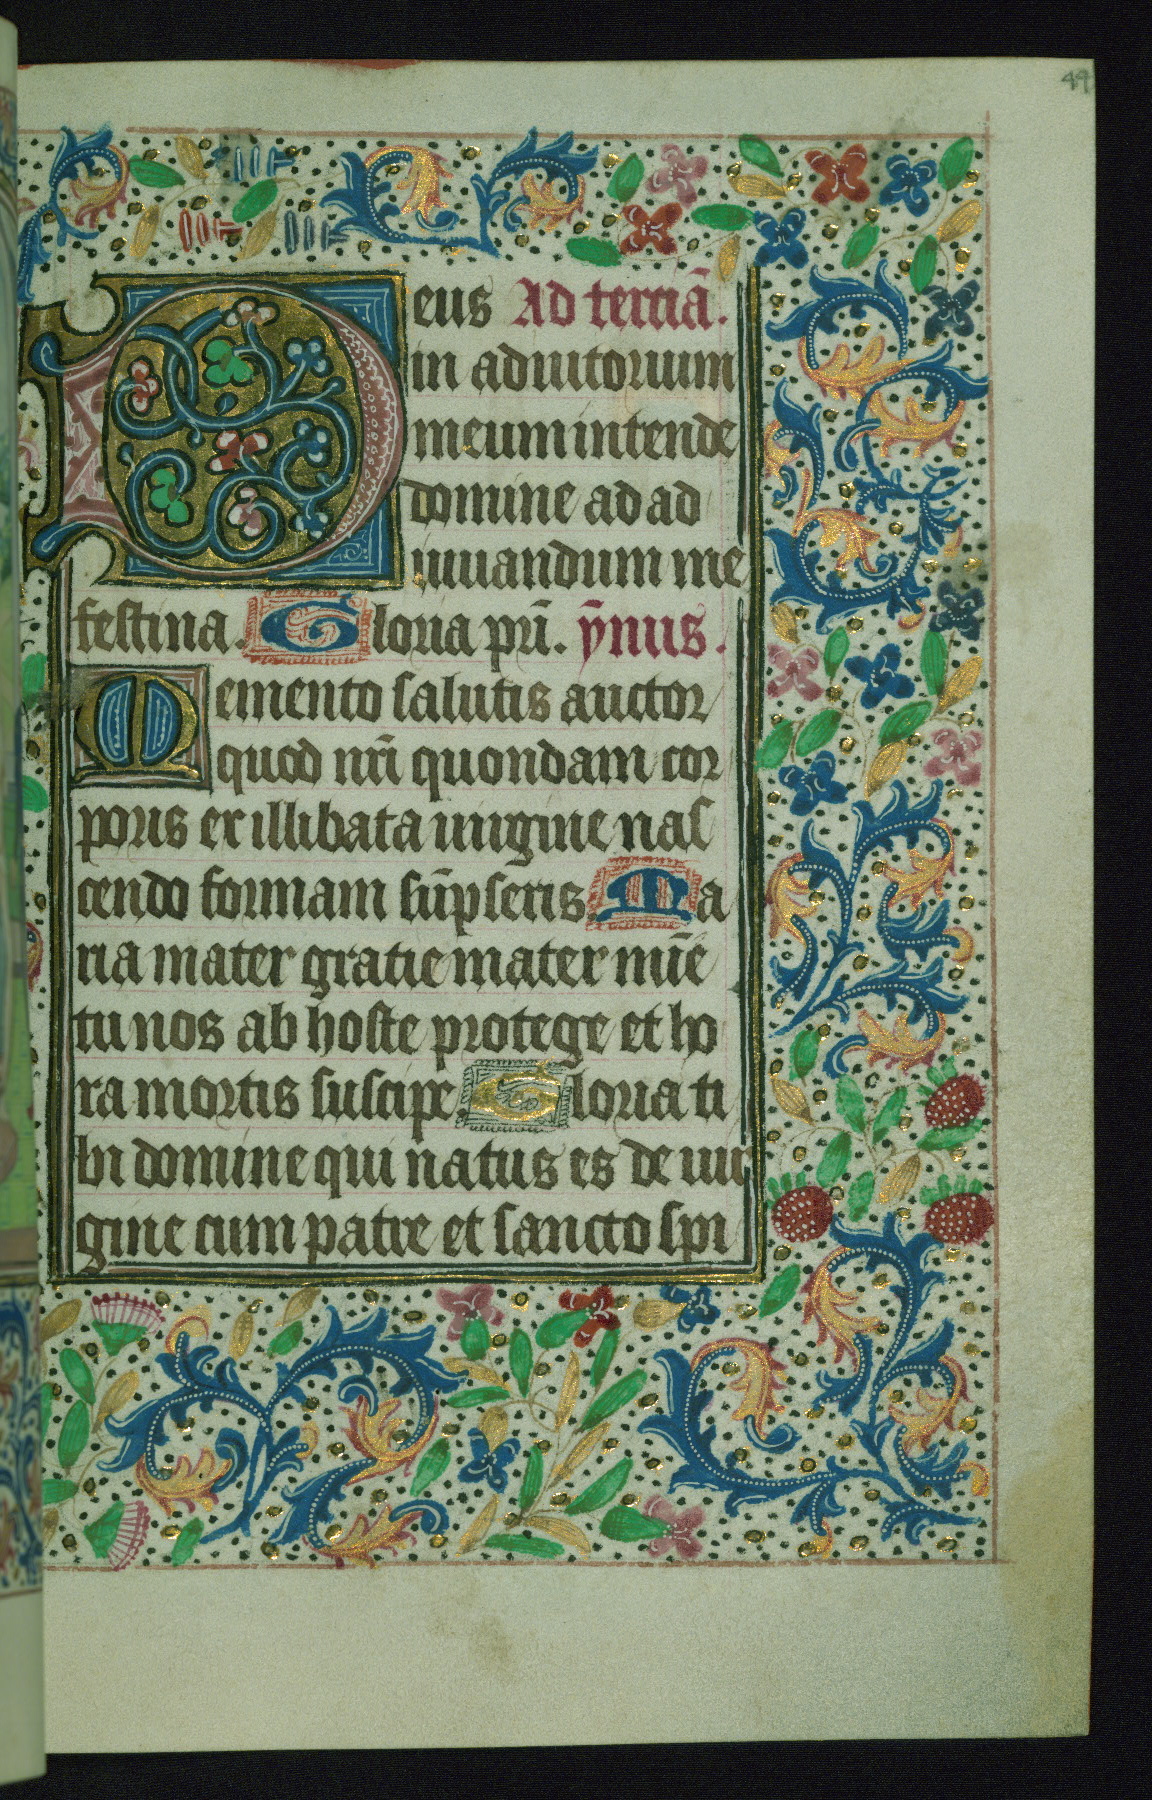 49
Deus Ad terciā.
in adiutorium
meum intende
domine ad ad
iuuandum me
festina. Gloria pr̄i. ȳmnus.
Memento salutis auctor
quod nr̄i quondam cor
poris ex illibata uirgine nas
cendo formam sūpseris. Ma
ria mater gratie mater mīe
tu nos ab hoste protege et ho
ra mortis suscipe. Gloria ti
bi domine qui natus es de uir
gine cum patre et sancto spi